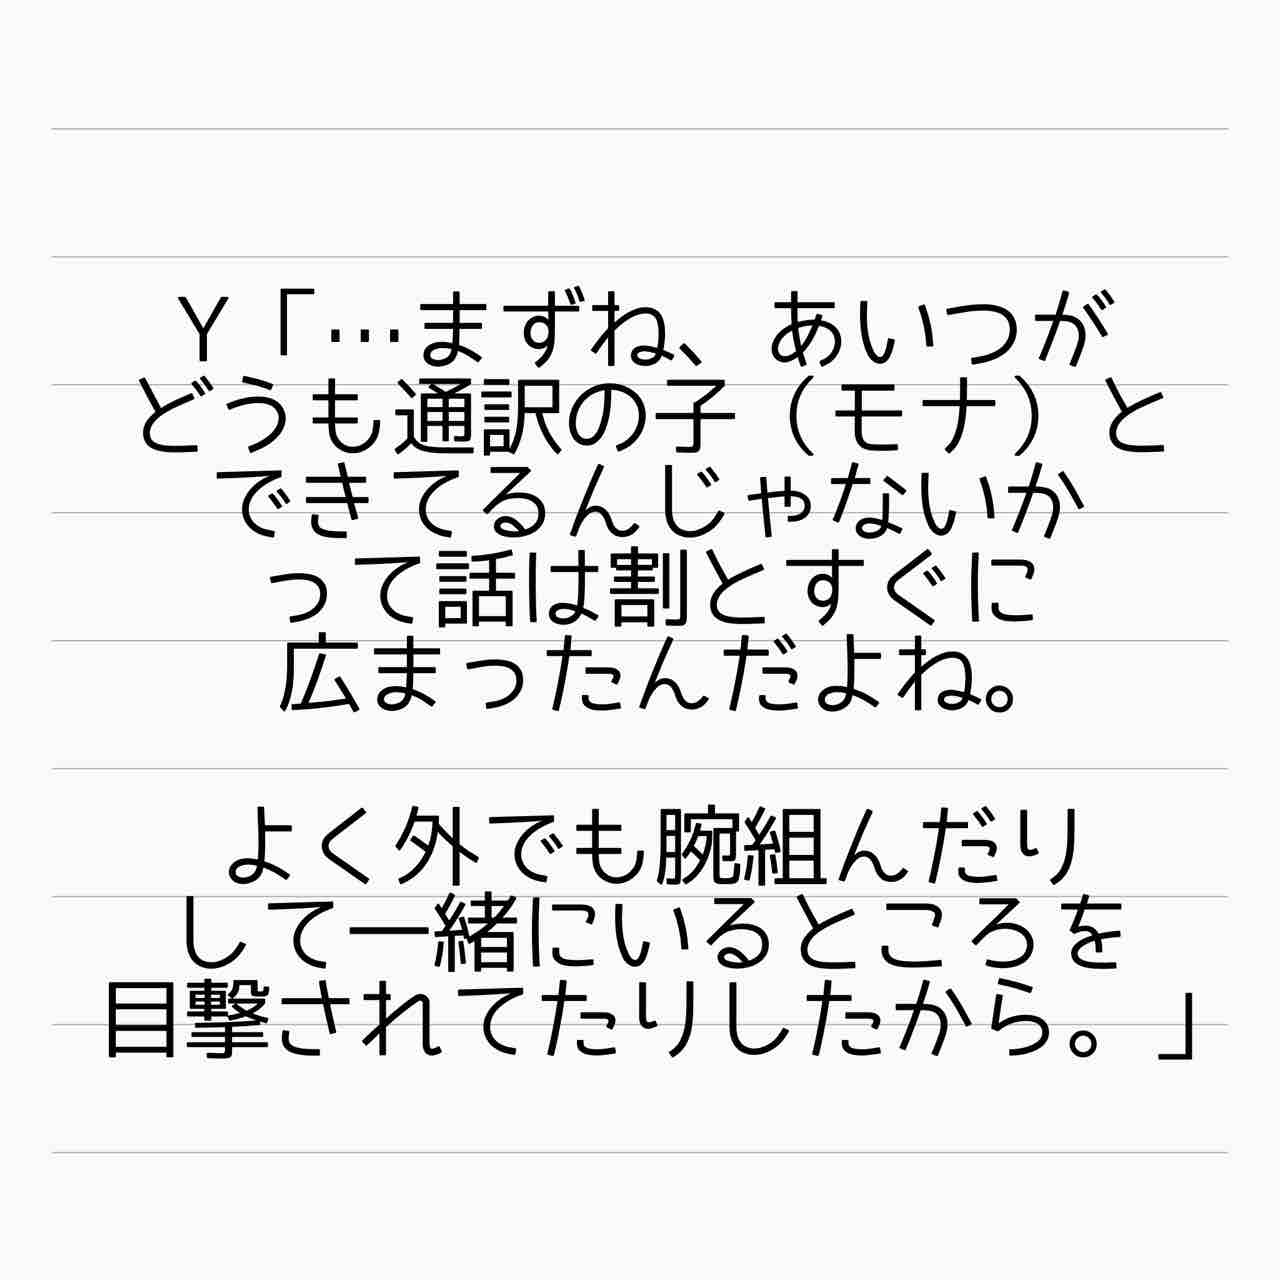 Y「…まずね、あいつが
どうも通訳の子（モナ）と
できてるんじゃないか
って話は割とすぐに
広まったんだよね。
よく外でも腕組んだり
して一緒にいるところを
目撃されてたりしたから。」